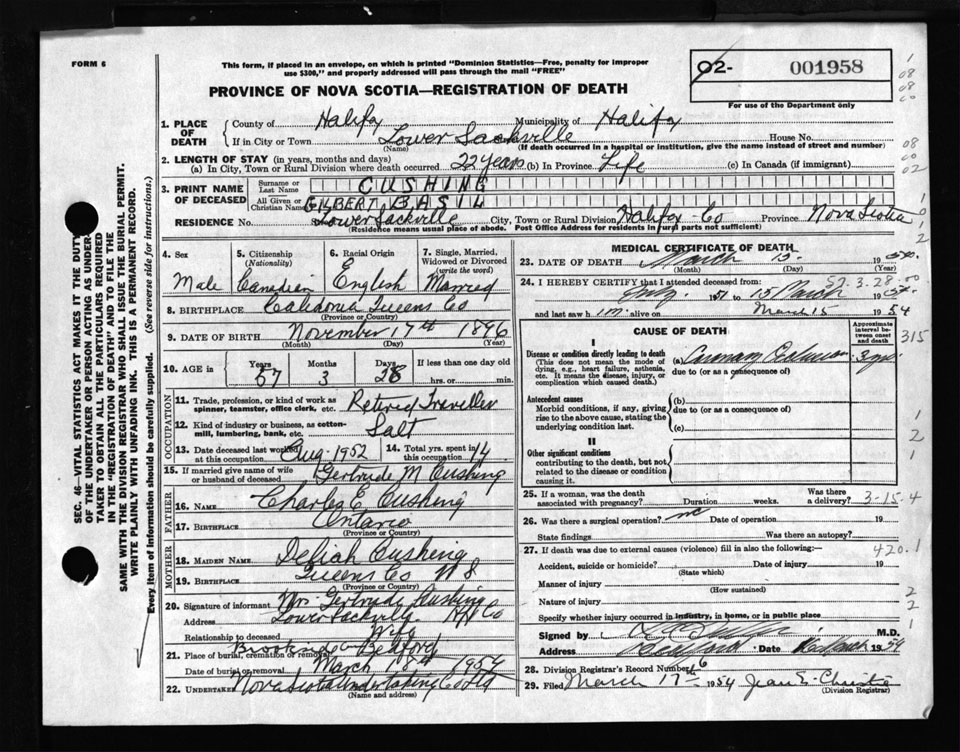 FORM 6
This form, if placed in an envelope, on which is printed "Dominion Statistics—Free, penalty for improper
use $300," and properly addressed will pass through the mail "FREE"
PROVINCE OF NOVA SCOTIA—REGISTRATION OF DEATH
02- 001958
For use of the Department only
1. PLACE OF DEATH
County of Halifax Municipality of Halifax
If in City or Town Lower Sackville House No.
(Name) (If death occurred in a hospital or institution, give the name instead of street and number)
2. LENGTH OF STAY (in years, months and days)
(a) In City, Town or Rural Division where death occurred 22 years (b) In Province Life (c) In Canada (if immigrant)
3. PRINT NAME OF DECEASED
Surname or Last Name CUSHING
All Given or Christian Names GILBERT BASIL
RESIDENCE No. Lower Sackville City, Town or Rural Division Halifax Co Province Nova Scotia
(Residence means usual place of abode. Post Office Address for residents in rural parts not sufficient)
4. Sex Male
5. Citizenship (Nationality) Canadian
6. Racial Origin English
7. Single, Married, Widowed or Divorced (write the word) Married
8. BIRTHPLACE Caledonia Queens Co
(Province or Country)
9. DATE OF BIRTH November 17th 1896
(Month) (Day) (Year)
10. AGE in Years 57 Months 3 Days 28 If less than one day old
hrs. or min.
OCCUPATION
11. Trade, profession, or kind of work as
spinner, teamster, office clerk, etc. Retired Traveller
12. Kind of industry or business, as cotton-
mill, lumbering, bank, etc. Salt
13. Date deceased last worked at this occupation Aug 1952
14. Total yrs. spent in this occupation 14
15. If married give name of wife
or husband of deceased Gertrude M Cushing
FATHER
16. NAME Charles E Cushing
17. BIRTHPLACE Ontario
(Province or Country)
MOTHER
18. MAIDEN NAME Deliah Cushing
19. BIRTHPLACE Queens Co N S
(Province or Country)
20. Signature of informant Mrs Gertrude Cushing
Address Lower Sackville Hfx Co
Relationship to deceased Wife
21. Place of burial, cremation or removal Brookside Bedford
Date of burial or removal March 18th 1954
22. UNDERTAKER Nova Scotia Undertaking Co Ltd
(Name and address)
MEDICAL CERTIFICATE OF DEATH
23. DATE OF DEATH March 15 1954
(Month) (Day) (Year)
24. I HEREBY CERTIFY that I attended deceased from:
1951 to 15 March 1954
and last saw him alive on March 15 1954
CAUSE OF DEATH
Approximate interval between onset and death
I
Disease or condition directly leading to death
(This does not mean the mode of
dying, e.g., heart failure, asthenia,
etc. It means the disease, injury, or
complication which caused death.)
(a) Coronary Occlusion
due to (or as a consequence of)
Antecedent causes
Morbid conditions, if any, giving
rise to the above cause, stating the
underlying condition last.
(b)
due to (or as a consequence of)
(c)
II
Other significant conditions
contributing to the death, but not
related to the disease or condition
causing it.
25. If a woman, was the death
associated with pregnancy? Duration weeks. Was there a delivery?
3-15-4
26. Was there a surgical operation? no Date of operation 19
State findings Was there an autopsy?
27. If death was due to external causes (violence) fill in also the following:— 420.1
Accident, suicide or homicide? Date of injury 19
(State which)
Manner of injury
(How sustained)
Nature of injury
Specify whether injury occurred in industry, in home, or in public place
Signed by M.D.
Address Bedford Date 1954
28. Division Registrar's Record Number 6
29. Filed March 17th 1954 Jean E. Christie
(Division Registrar)
SEC. 46—VITAL STATISTICS ACT MAKES IT THE DUTY
OF THE UNDERTAKER OR PERSON ACTING AS UNDER-
TAKER TO OBTAIN ALL THE PARTICULARS REQUIRED
IN THE "REGISTRATION OF DEATH" AND TO FILE THE
SAME WITH THE DIVISION REGISTRAR WHO SHALL ISSUE THE BURIAL PERMIT.
WRITE PLAINLY WITH UNFADING INK. THIS IS A PERMANENT RECORD.
Every item of information should be carefully supplied. (See reverse side for instructions.)